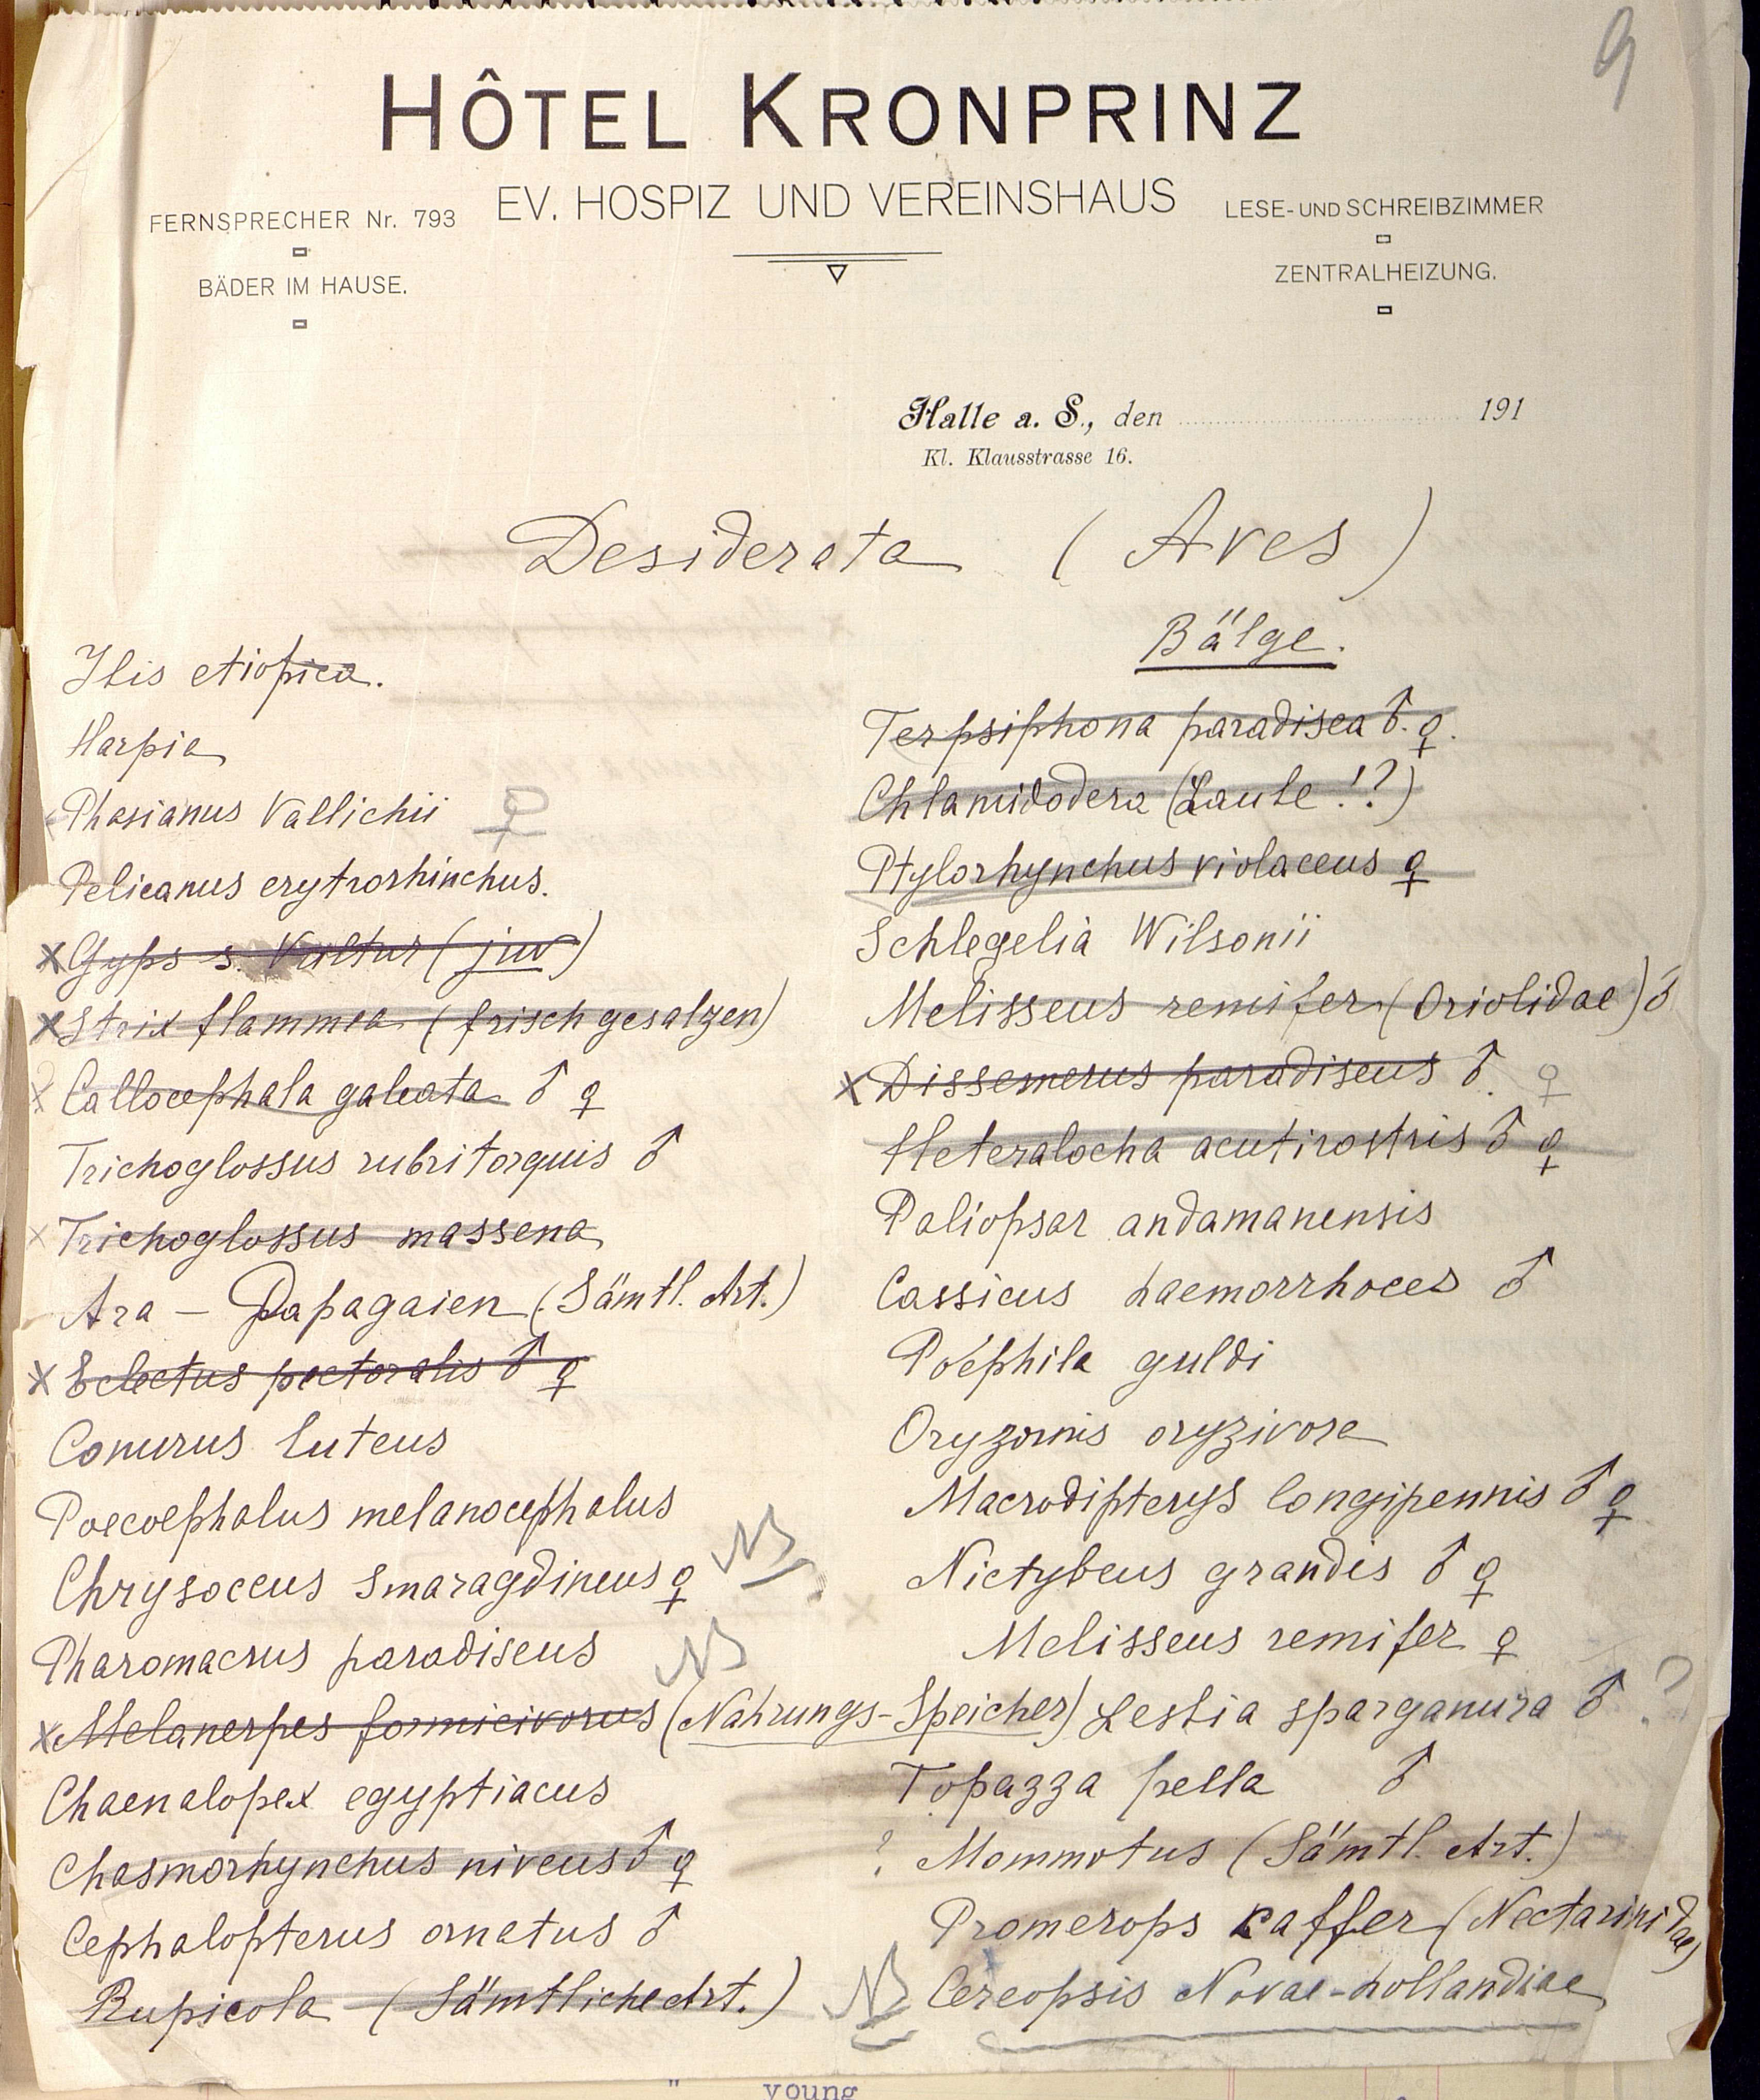 9
HÔTEL KRONPRINZ
EV. HOSPIZ UND VEREINSHAUS
FERNSPRECHER Nr. 793
BÄDER IM HAUSE.
LESE- UND SCHREIBZIMMER
ZENTRALHEIZUNG.
Halle a. S., den 191
Kl. Klausstrasse 16.
Desiderata (Aves)
Ibis etiopica.
Harpia
Phasianus Vallichii ♀
Pelicanus erytrorhinchus.
x Gyps s. Vultur (juv)
x Strix flammea (frisch gesalzen)
x Callocephala galeata ♂ ♀
Trichoglossus rubritorquis ♂
x Trichoglossus massena
Ara – Papagaien (Sämtl. Art.)
x Eclectus pectoralis ♂ ♀
Conurus luteus
Poecoephalus melanocephalus
Chrysoccus smaragdineus ♀ NB
Pharomacrus paradiseus NB
x Melanerpes formicivorus (Nahrungs-Speicher)
Chaenalopex egyptiacus
Chasmorhynchus niveus ♂ ♀
Cephalopterus ornatus ♂
Rupicola (Sämtliche Art.)
Bälge.
Terpsiphona paradisea ♂. ♀.
Chlamidodera (Laube!?)
Ptylorhynchus violaceus ♀
Schlegelia Wilsonii
Melisseus remifer (Oriolidae) ♂
x Dissemerus paradiseus ♂. ♀
Heteralocha acutirostris ♂ ♀
Poliopsar andamanensis
Cassicus haemorrhoces ♂
Poëphila guldi
Oryzornis oryzivora
Macrodipterys longipennis ♂ ♀
Nictybeus grandis ♂ ♀
Melisseus remifer ♀
Lesbia sparganura ♂ ?
Topazza pella ♂
? Mommotus (Sämtl. Art.)
Promerops caffer (Nectarinidae)
NB Cereopsis Novae-hollandiae
" young